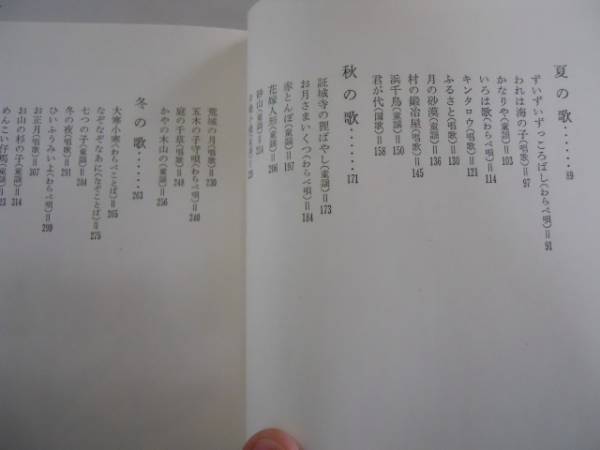 夏の歌……89
ずいずいずっころばし(わらべ唄)＝91
われは海の子(唱歌)＝97
かなりや(童謡)＝103
いろは歌(わらべ唄)＝114
キンタロウ(唱歌)＝121
ふるさと(唱歌)＝130
月の砂漠(童謡)＝138
村の鍛冶屋(唱歌)＝145
浜千鳥(童謡)＝150
君が代(国歌)＝158
秋の歌……171
証城寺の狸ばやし(童謡)＝173
お月さまいくつ(わらべ唄)＝184
赤とんぼ(童謡)＝197
花嫁人形(童謡)＝206
砂山(童謡)＝214
荒城の月(唱歌)＝230
五木の子守唄(わらべ唄)＝240
庭の千草(唱歌)＝248
かやの木山の(童謡)＝256
冬の歌……263
大寒小寒(わらべことば)＝265
なぞなぞなあに(なぞことば)＝275
七つの子(童謡)＝284
冬の夜(唱歌)＝291
ひいふうみいよ(わらべ唄)＝299
お正月(唱歌)＝307
お山の杉の子(童謡)＝314
めんこい仔馬(童謡)＝